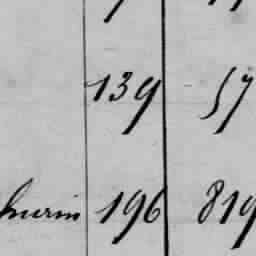 139 57
hurin 196 819